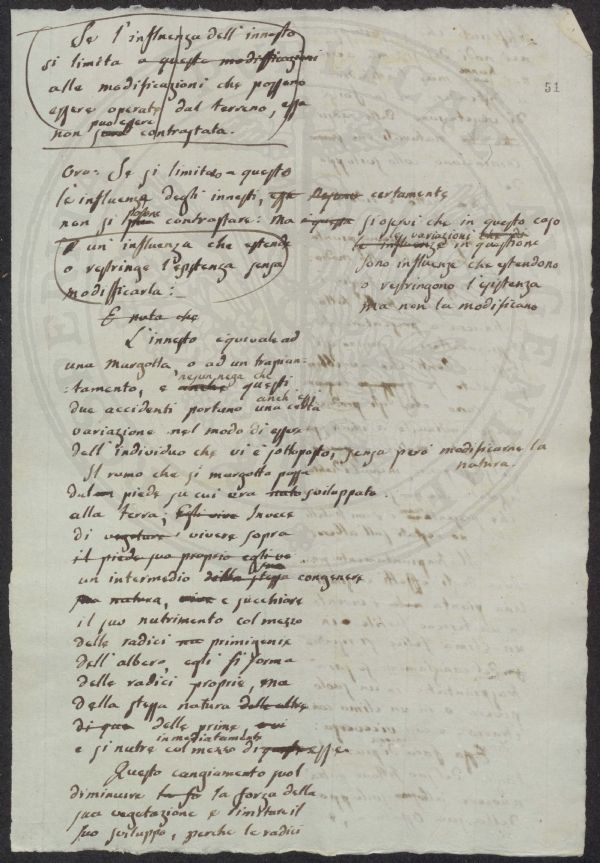 51
Se l'influenza dell'innesto
si limita a queste modificazioni
alle modificazioni che possono
essere operate dal terreno, essa
può essere
non sarà contrastata.
Ora: Se si limitano a questo
le influenze degli innesti, esse certamente
possono
non si può contrastare: ma si osservi che in questo caso
le variazioni che
È un'influenza che estende
le influenze in questione
o restringe l'esistenza senza
sono influenze che estendono
modificarla:
o restringono l'esistenza
ma non la modificano
E nota che
L'innesto equivale ad
una margotta, o ad un trapian-
nessun nega che
:tamento, e anche questi
anch'essi
due accidenti portano una certa
variazione nel modo di essere
dell'individuo che vi è sottoposto, senza però modificarne la
natura.
Il ramo che si margotta passa
dal piede su cui era nato sviluppato
alla terra; Egli vive Invece
di vegetare vivere sopra
il piede suo proprio egli ve
un intermedio della stessa congenere
sua natura, vive e succhiare
il suo nutrimento col mezzo
delle radici primigenie
dell'albero, egli si forma
delle radici proprie, ma
della stessa natura delle altre
di que delle prime,
immediatamente
e si nutre col mezzo di esse.
Questo cangiamento suol
diminuire la forza della
sua vegetazione e limitare il
suo sviluppo, perche le radici